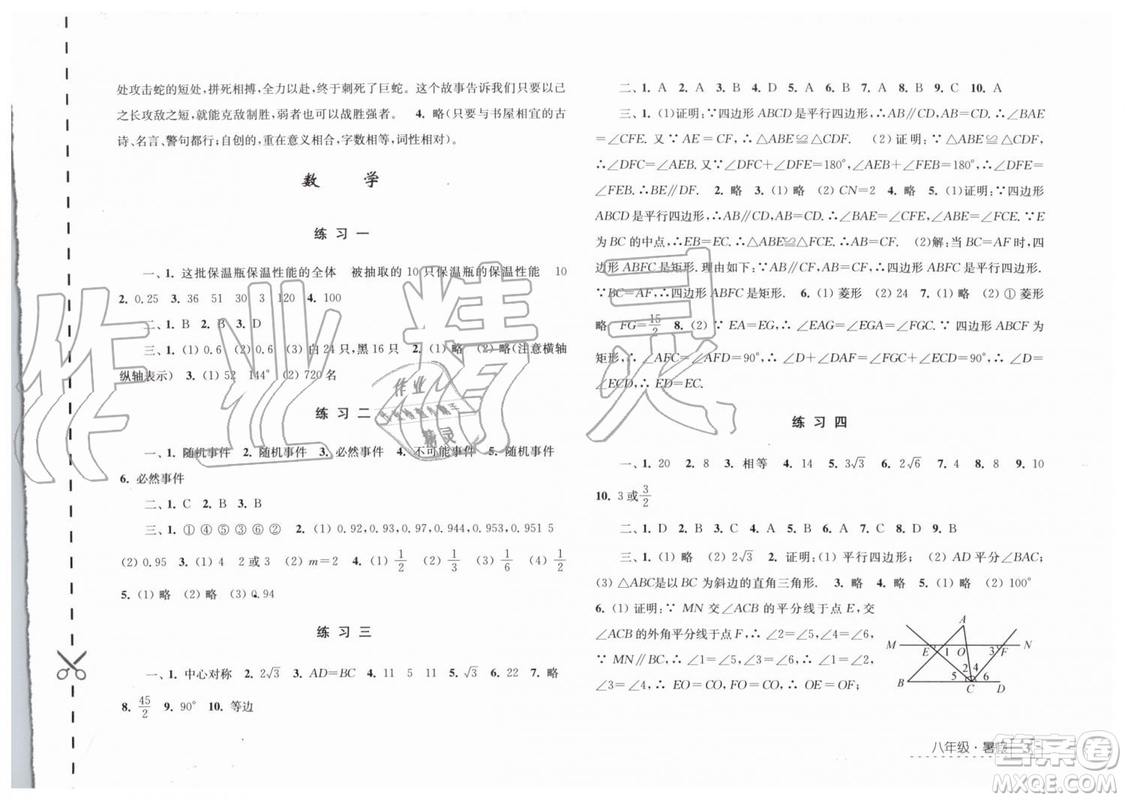 处攻击蛇的短处，拼死相搏，全力以赴，终于刺死了巨蛇。这个故事告诉我们只要以己
之长攻敌之短，就能克敌制胜，弱者也可以战胜强者。 4. 略(只要与书屋相宜的古
诗、名言、警句都行；自创的，重在意义相合，字数相等，词性相对)。
数 学
练 习 一
一、1. 这批保温瓶保温性能的全体 被抽取的 10 只保温瓶的保温性能 10
2. 0.25 3. 36 30 3 120 4. 100
二、1. B 2. B 3. D
三、1. (1) 0.6 (2) 0.6 (3) 白 24 只，黑 16 只 2. (1) 略 (2) 略(注意横轴
纵轴表示) 3. (1) 52 144° (2) 720 名
练 习 二
一、1. 随机事件 2. 随机事件 3. 必然事件 4. 不可能事件 5. 随机事件
6. 必然事件
二、1. C 2. B 3. B
三、1. ① ④ ⑤ ③ ⑥ ② 2. (1) 0.92，0.93，0.942，0.944，0.953，0.951 5
(2) 0.95 3. (1) 4 2 或 3 (2) m＝2 4. (1) 1/2 (2) 1/2 (3) 1/2
5. (1) 略 (2) 略 (3) 0.94
练 习 三
一、1. 中心对称 2. 2√3 3. AD＝BC 4. 15 5. √3 6. 22 7. 略
8. 45/2 9. 90° 10. 等边
二、1. A 2. A 3. A 4. C 5. D 6. D 7. A 8. B 9. C 10. A
三、1. (1)证明：∵四边形 ABCD 是平行四边形，∴AB∥CD，∴∠AEB＝
∠CFE. 又∵AE＝CF，∴△ABE≌△CDF. (2)证明：∵△ABE≌△CDF，
∴∠DFC＝∠AEB. 又∵∠DFC＋∠DFE＝180°，∠AEB＋∠BEF＝180°，∴∠DFE＝
∠FEB，∴BE∥DF. 2. 略 3. (1) 略 (2) CN＝2 4. 略 5. (1)证明：∵四边形
ABCD 是平行四边形，∴AB∥DF，∴∠BAE＝∠CFE，∠ABE＝∠FCE. ∵E
为 BC 的中点，∴EB＝EC. ∴△ABE≌△FCE. (2)解：当 BC＝AF 时，四
边形 ABFC 是矩形. 理由如下：∵四边形
∵BC＝AF，∴四边形 ABFC 是矩形. 6. (1) 菱形 (2) 24 7. (1) 略 (2) ① 菱形
略 FG＝15/2 8. (2) ∵EA＝EG，∴∠EAG＝∠EGA. ∵四边形 ABCF 为
矩形，∴∠AFC＝∠AFD＝90°，∴∠D＋∠DAF＝∠GCF＋∠EGA＝90°，∴∠D＝
∠ECD，∴ED＝EC.
练 习 四
一、1. 20 2. 8 3. 相等 4. 14 5. 3√3 6. 2√6 7. 4 8. 4 9. 10
10. 3 或 3/2
二、1. D 2. B 3. C 4. D 5. A 6. D 7. C 8. D
三、1. (1) 略 (2) 2√3 2. 证明：(1) 平行四边形； (2) AD 平分∠BAC；
(3) △ABC 是以 BC 为斜边的直角三角形. 3. 略 4. 略 5. (1) 略 (2) 100°
6. (1) 证明：∵MN 交∠ACB 的平分线于点 E，交
∠ACB 的外角平分线于点 F，∴∠2＝∠5，∠4＝∠6.
∵MN∥BC，∴∠1＝∠5，∠3＝∠6，∴∠1＝∠2，
∠3＝∠4，∴EO＝CO，FO＝CO，∴OE＝OF.
A
M E 1 O 3 F N
2 4
5 6
B C D
八年级·暑假 3
作业精灵
答案卷
MXQE.COM